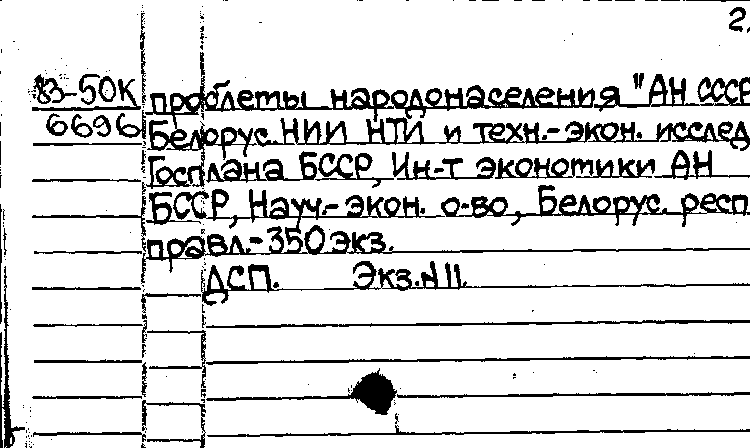 2.
83-50К проблемы народонаселения "АН СССР
6696 Белорус. НИИ НТИ и техн.-экон. исслед
Госплана БССР, Ин-т экономики АН
БССР, Науч.-экон. о-во, Белорус. респ.
правл.-350 экз.
ДСП. Экз.№11.